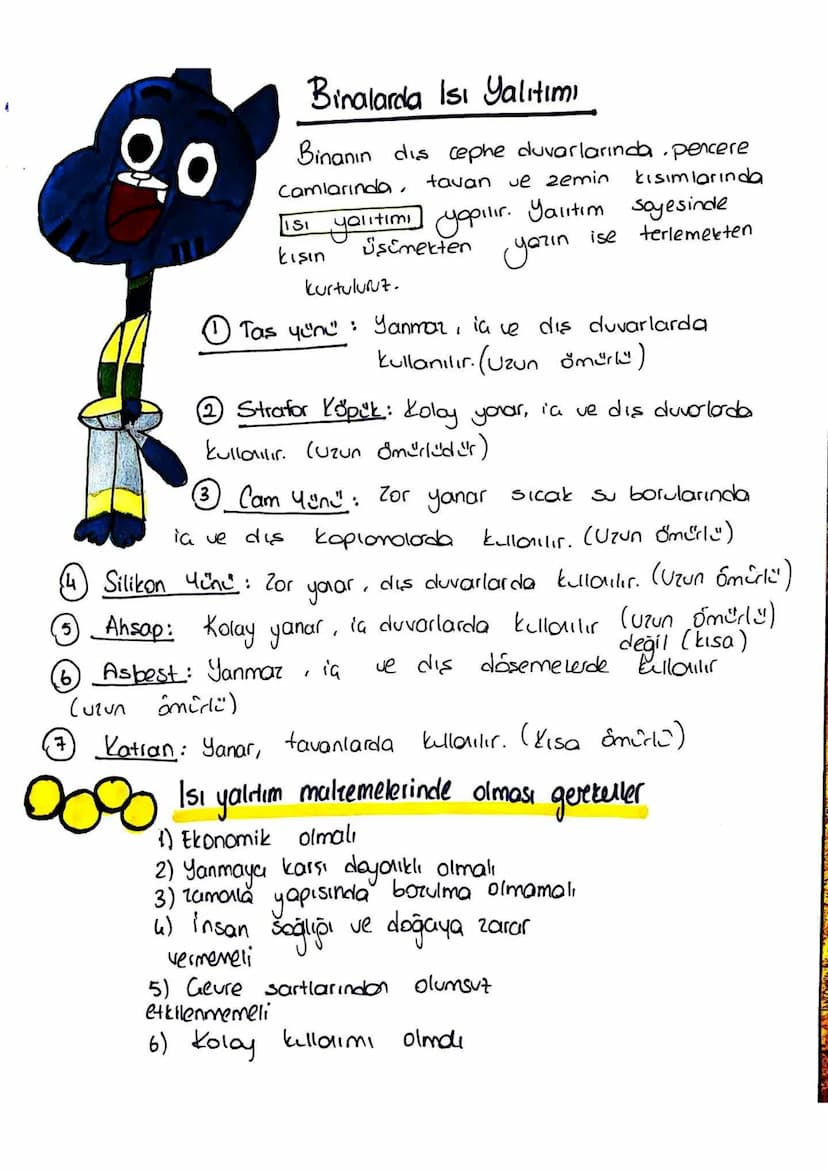 Binalarda Isı Yalıtımı
Binanın dış cephe duvarlarında, pencere
camlarında, tavan ve zemin kısımlarında
ısı yalıtımı yapılır. Yalıtım sayesinde
kışın üşümekten yazın ise terlemekten
kurtuluruz.
① Taş yünü: Yanmaz, iç ve dış duvarlarda
kullanılır. (Uzun ömürlü)
② Strafor Köpük: Kolay yanar, iç ve dış duvarlarda
kullanılır. (Uzun ömürlüdür)
③ Cam Yünü: Zor yanar sıcak su borularında
iç ve dış kaplamalarda kullanılır. (Uzun ömürlü)
④ Silikon Yünü: Zor yanar, dış duvarlarda kullanılır. (Uzun ömürlü)
⑤ Ahşap: Kolay yanar, iç duvarlarda kullanılır (uzun ömürlü)
değil (kısa)
⑥ Asbest: Yanmaz, iç ve dış döşemelerde kullanılır
(uzun ömürlü)
⑦ Katran: Yanar, tavanlarda kullanılır. (Kısa ömürlü)
Isı yalıtım malzemelerinde olması gerekenler
1) Ekonomik olmalı
2) Yanmaya karşı dayanıklı olmalı
3) zamanla yapısında bozulma olmamalı
4) İnsan sağlığı ve doğaya zarar
vermemeli
5) Çevre şartlarından olumsuz
etkilenmemeli
6) Kolay kullanımı olmalı